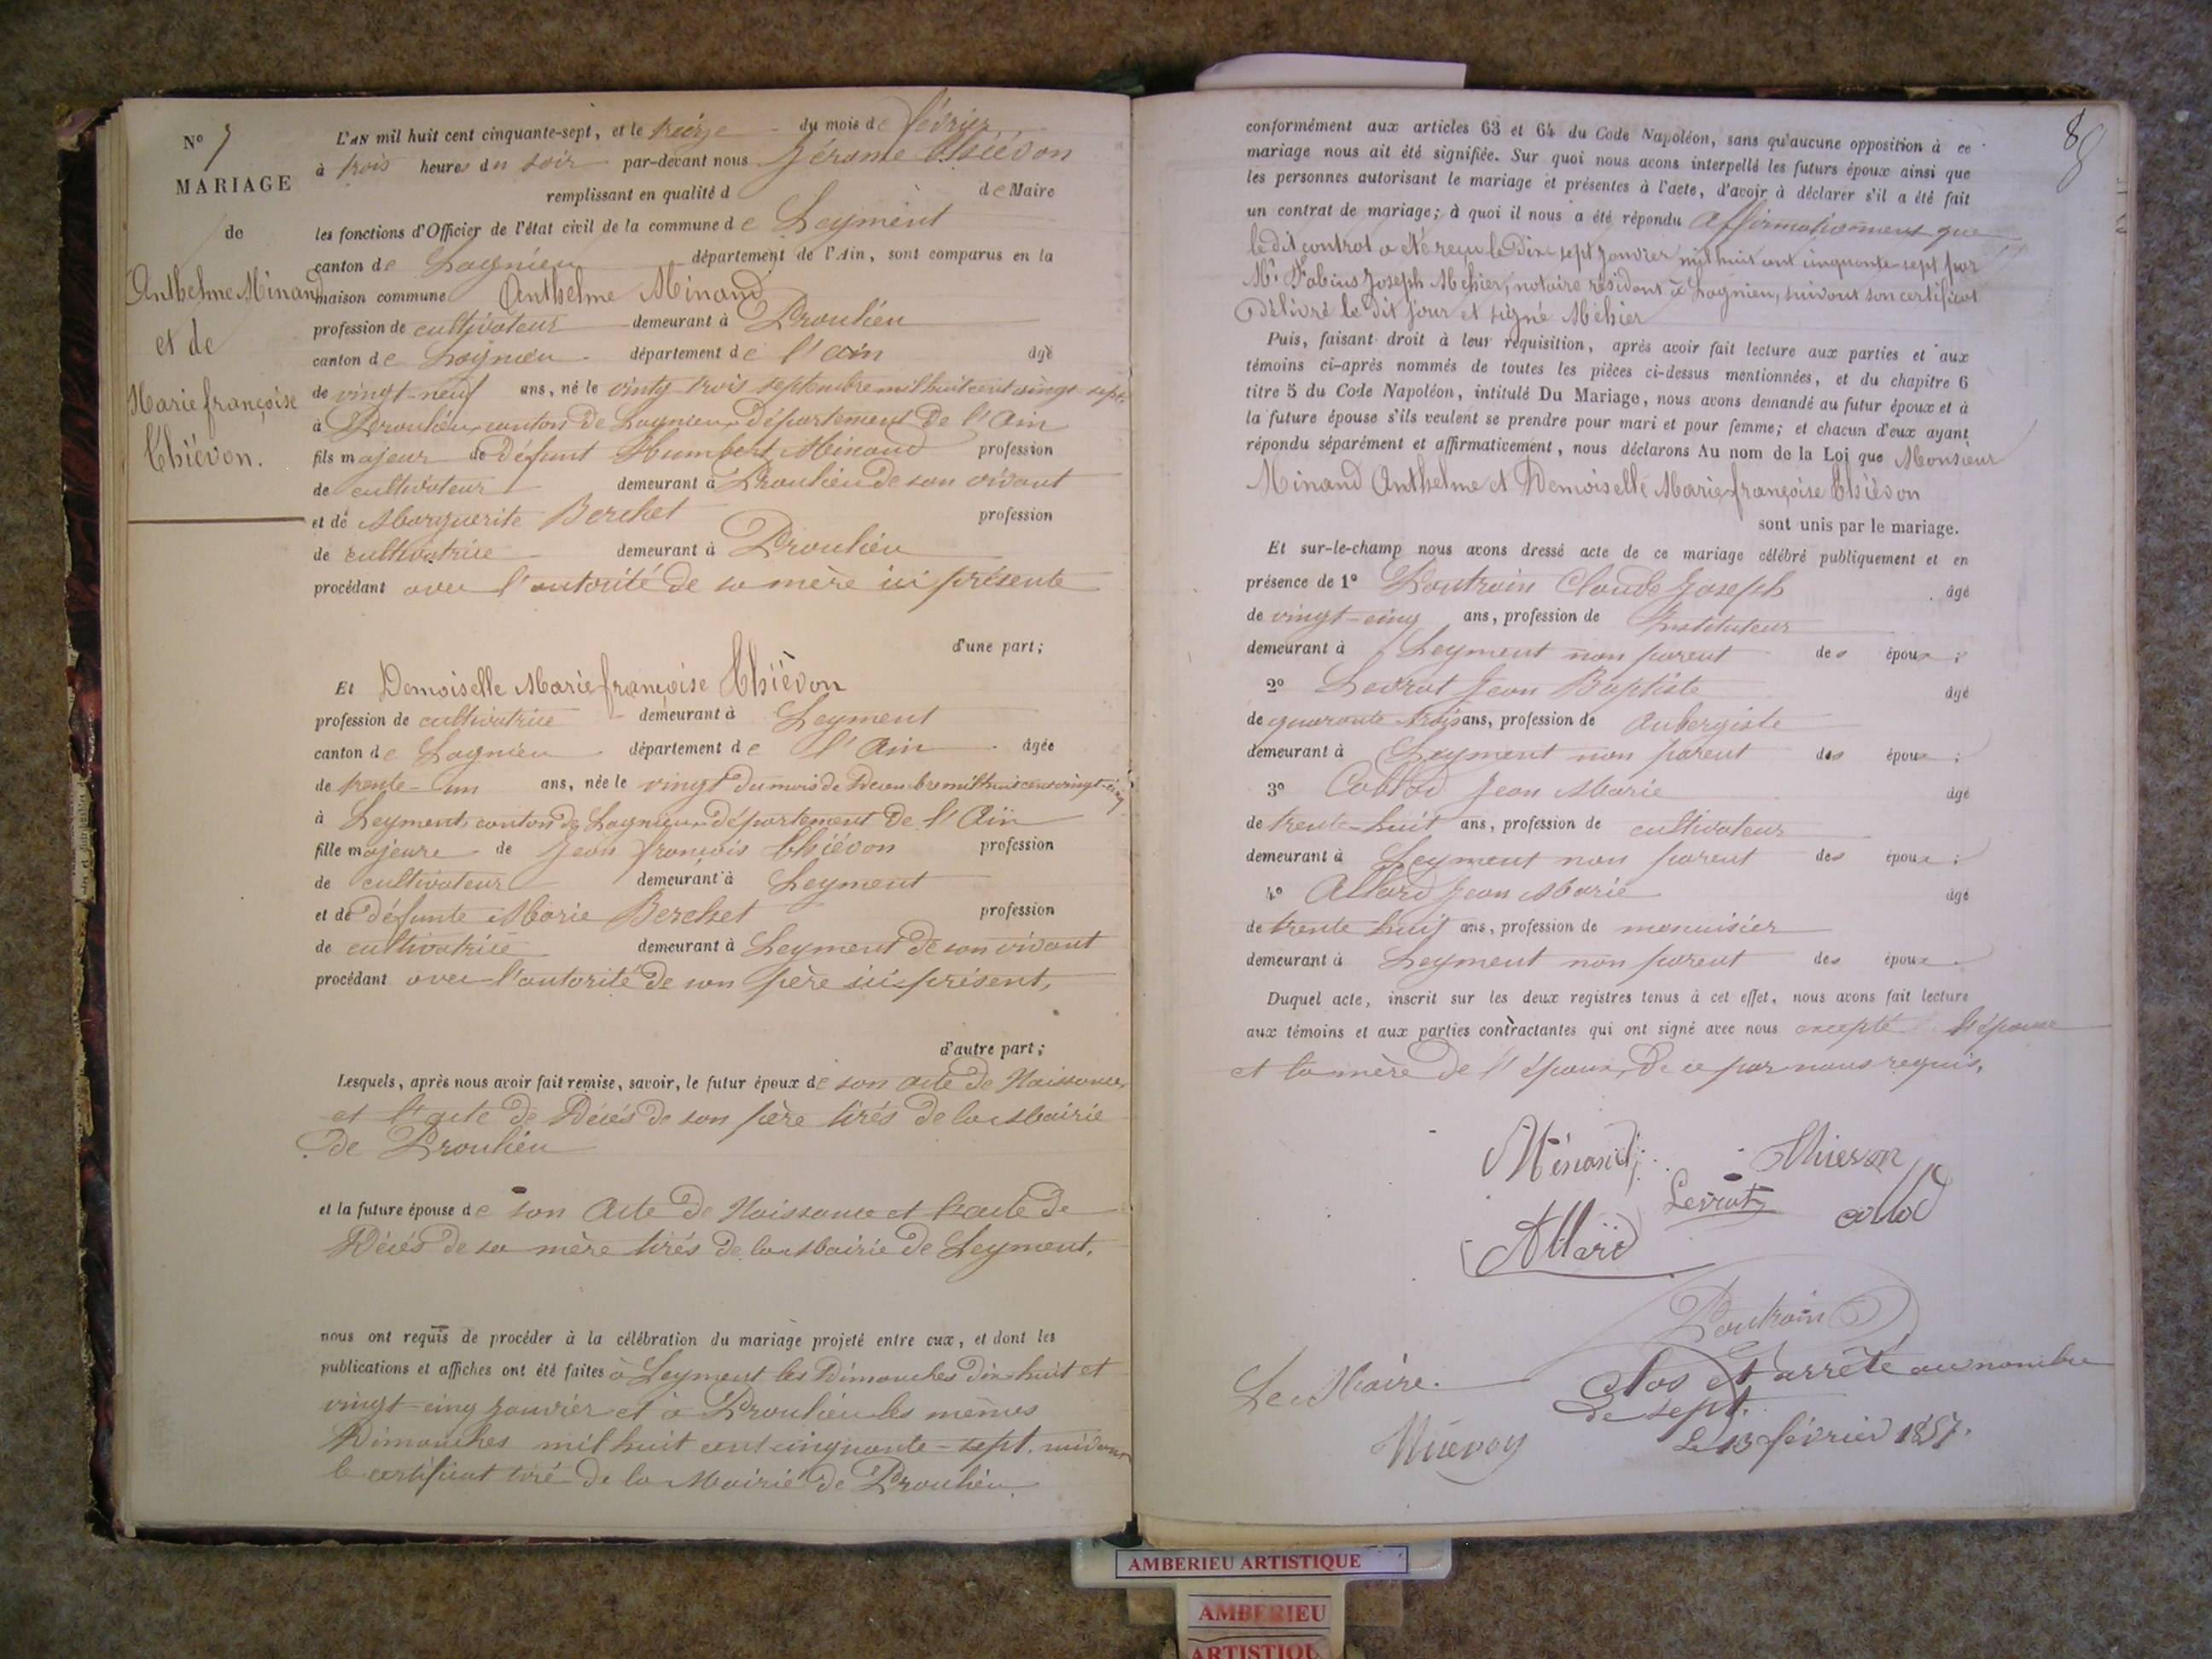 N° 7
MARIAGE
de
Anthelme Minand
et de
Marie françoise
Thiévon.
L'AN mil huit cent cinquante-sept, et le treize du mois de février
à trois heures du soir par-devant nous Jérome Thiévon
remplissant en qualité d de Maire
les fonctions d'Officier de l'état civil de la commune de Leyment
canton de Lagnieu département de l'Ain, sont comparus en la
maison commune Anthelme Minand
profession de cultivateur demeurant à Proulieu
canton de Lagnieu département de l'ain âgé
de vingt-neuf ans, né le vingt trois septembre mil huit cent vingt sept,
à Proulieu, canton de Lagnieu, Département de l'Ain
fils majeur de défunt Humbert Minand profession
de cultivateur demeurant à Proulieu de son vivant
et de Marguerite Berchet profession
de cultivatrice demeurant à Proulieu
procédant avec l'autorité de sa mère ici présente
d'une part;
Et Demoiselle Marie françoise Thiévon
profession de cultivatrice demeurant à Leyment
canton de Lagnieu département de l'Ain âgée
de trente-un ans, née le vingt du mois de Décembre mil huit cent vingt-cinq
à Leyment, canton de Lagnieu, Département de l'Ain
fille majeure de Jean françois Thiévon profession
de cultivateur demeurant à Leyment
et de défunte Marie Berchet profession
de cultivatrice demeurant à Leyment de son vivant
procédant avec l'autorité de son père ici présent,
d'autre part;
Lesquels, après nous avoir fait remise, savoir, le futur époux de son acte de Naissance,
et l'acte de Décès de son père tirés de la Mairie
de Proulieu
et la future épouse de son Acte de Naissance et l'acte de
Décès de sa mère tirés de la Mairie de Leyment,
nous ont requis de procéder à la célébration du mariage projeté entre eux, et dont les
publications et affiches ont été faites à Leyment les Dimanches dix huit et
vingt-cinq janvier et à Proulieu les mêmes
Dimanches mil huit cent cinquante-sept, suivant
le certificat tiré de la Mairie de Proulieu
conformément aux articles 63 et 64 du Code Napoléon, sans qu'aucune opposition à ce
mariage nous ait été signifiée. Sur quoi nous avons interpellé les futurs époux ainsi que
les personnes autorisant le mariage et présentes à l'acte, d'avoir à déclarer s'il a été fait
un contrat de mariage; à quoi il nous a été répondu Affirmativement que
le dit contrat a été reçu le Dix-sept Janvier mil huit cent cinquante-sept par
Mr Fabius Joseph Mehier, notaire résidant à Lagnieu, suivant son certificat
Délivré le dit jour et signé Mehier
Puis, faisant droit à leur réquisition, après avoir fait lecture aux parties et aux
témoins ci-après nommés de toutes les pièces ci-dessus mentionnées, et du chapitre 6
titre 5 du Code Napoléon, intitulé Du Mariage, nous avons demandé au futur époux et à
la future épouse s'ils veulent se prendre pour mari et pour femme; et chacun d'eux ayant
répondu séparément et affirmativement, nous déclarons Au nom de la Loi que Monsieur
Minand Anthelme et Demoiselle Marie françoise Thiévon
sont unis par le mariage.
Et sur-le-champ nous avons dressé acte de ce mariage célébré publiquement et en
présence de 1° Poutrain Claude Joseph âgé
de vingt-cinq ans, profession de Instituteur
demeurant à Leyment non parent des époux;
2° Levrat Jean Baptiste âgé
de quarante trois ans, profession de Aubergiste
demeurant à Leyment non parent des époux;
3° Collod Jean Marie âgé
de trente-huit ans, profession de cultivateur
demeurant à Leyment non parent des époux;
4° Allard Jean Marie âgé
de trente huit ans, profession de menuisier
demeurant à Leyment non parent des époux.
Duquel acte, inscrit sur les deux registres tenus à cet effet, nous avons fait lecture
aux témoins et aux parties contractantes qui ont signé avec nous excepté l'épouse
et la mère de l'époux, de ce par nous requis,
Ménand Thievon
Levrat collod
Allard
Poutrain
Le Maire. Clos et arrêté au nombre
de sept.
Thiévon Le 13 février 1857.
AMBERIEU ARTISTIQUE
AMBERIEU
ARTISTIQU